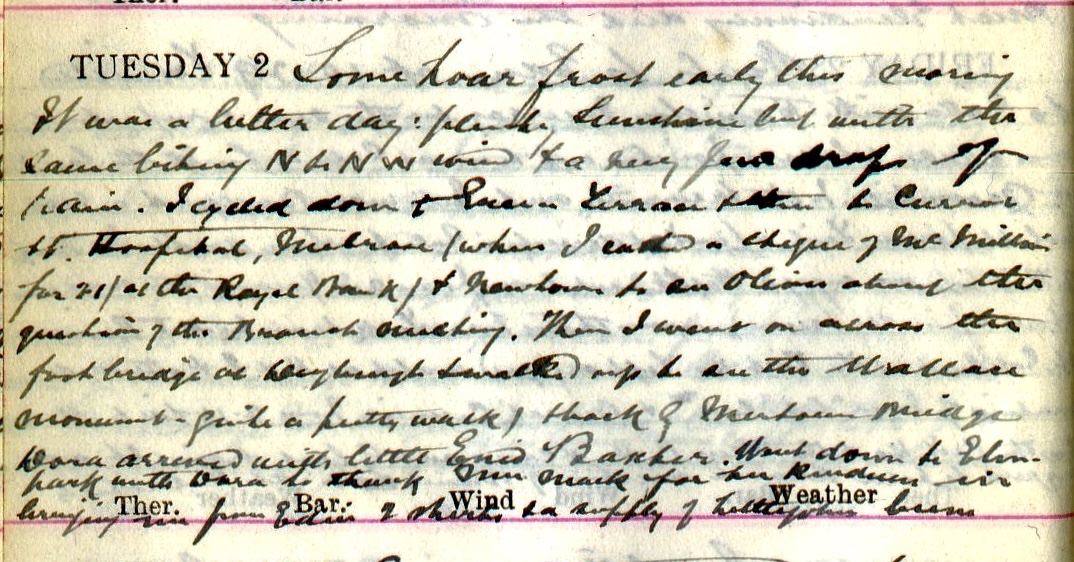 TUESDAY 2 Some hoar frost early this morning
It was a better day: plenty sunshine but with the
same biting N to N W wind & a very few drops of
rain. I cycled down to Terrace & then to
Hospital, Melrose (where I cashed a cheque of McMillan
for 21/ at the Royal Bank) & Newtown to see Oliver about the
question of the Branch meeting. Then I went on across the
foot bridge at Dryburgh & walked up to see the Wallace
monument - quite a pretty walk) & back by Mertoun Bridge
Dora arrived with little Enid Barker. Went down to Elm-
park with Dora to thank Mrs Mack for her kindness in
Ther. Bar. Wind Weather
bringing me from Edin 2 shirts & a supply of